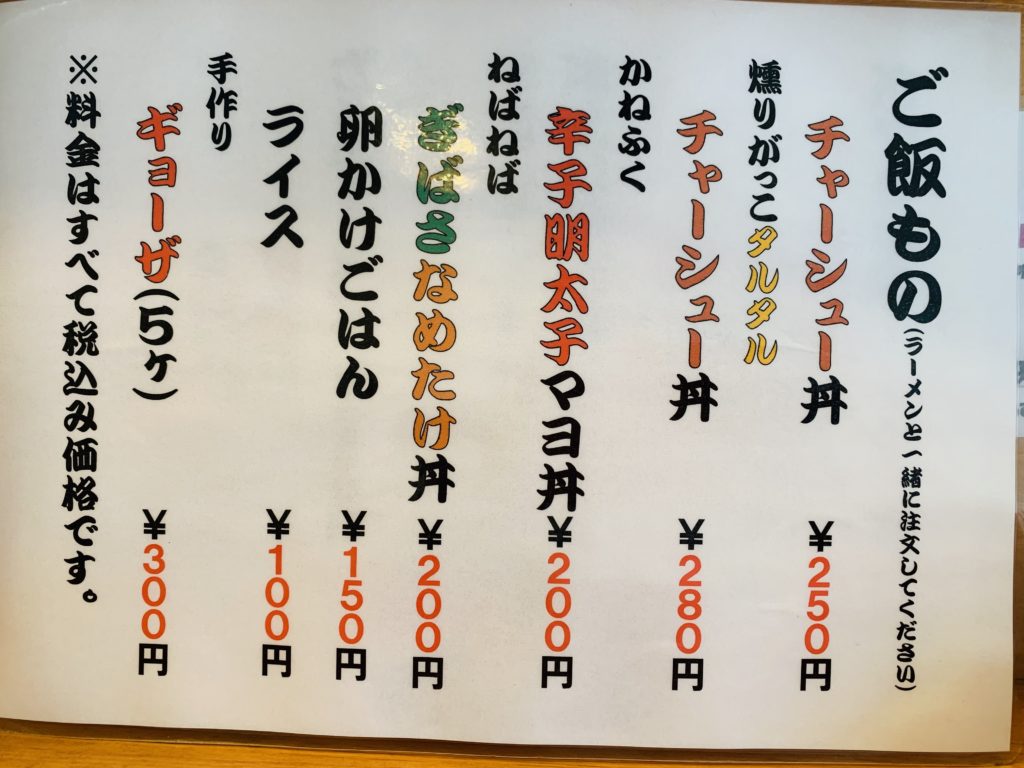 ご飯もの(ラーメンと一緒に注文してください)
チャーシュー丼 ¥250円
燻りがっこタルタル
チャーシュー丼 ¥280円
かねふく
辛子明太子マヨ丼 ¥200円
ねばねば
ぎばさなめたけ丼 ¥200円
卵かけごはん ¥150円
ライス ¥100円
手作り
ギョーザ(5ケ) ¥300円
※料金はすべて税込み価格です。